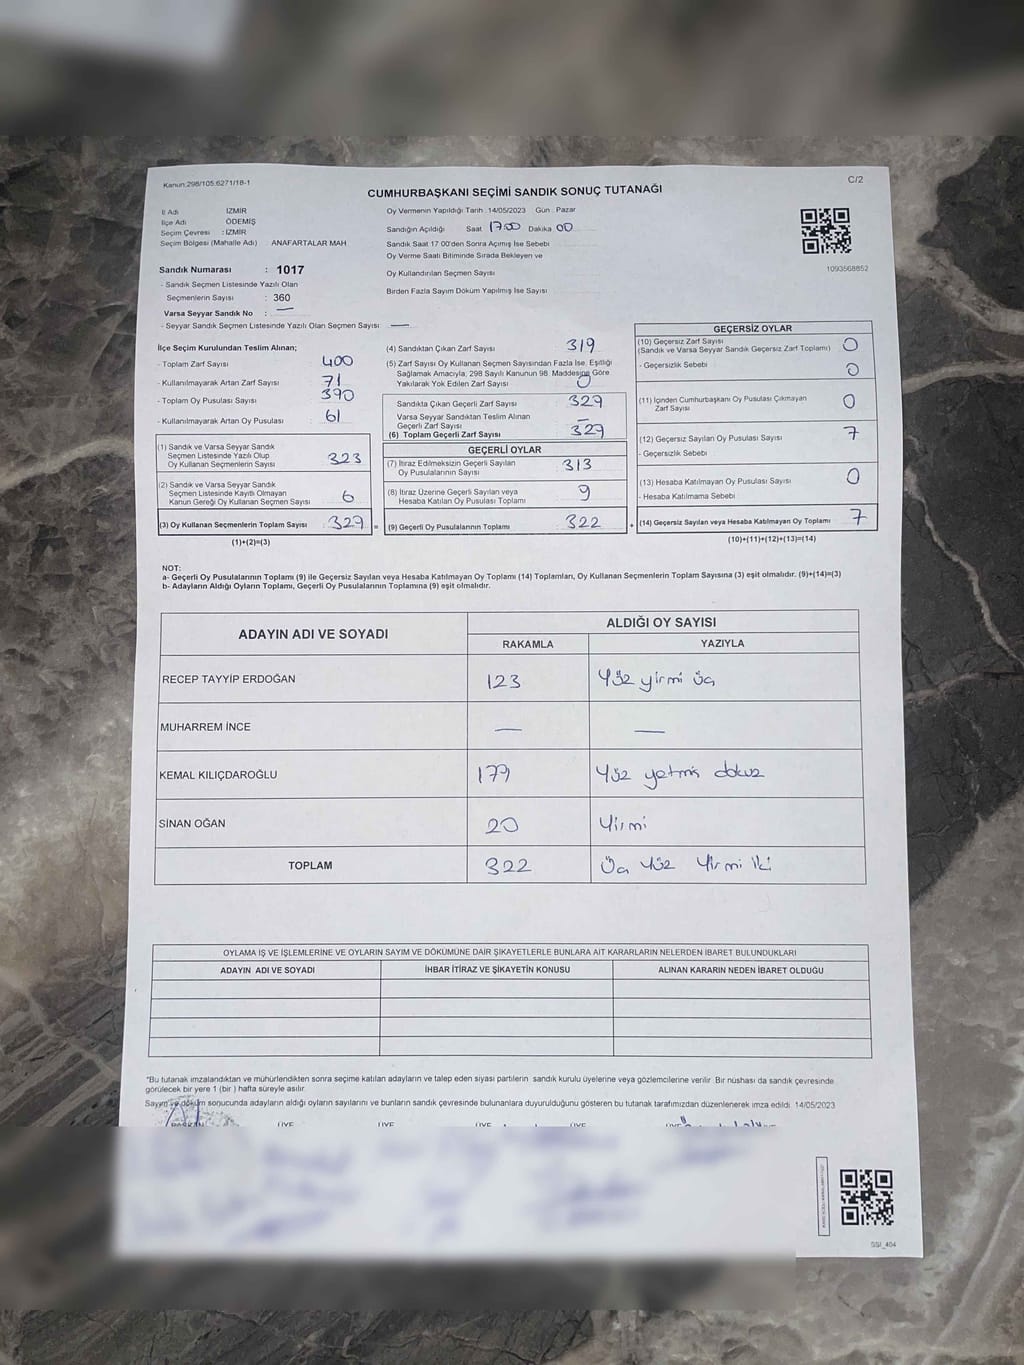 Kanun:298/105:6271/18-1
C/2
CUMHURBAŞKANI SEÇİMİ SANDIK SONUÇ TUTANAĞI
İl Adı İZMİR
İlçe Adı ÖDEMİŞ
Seçim Çevresi : İZMİR
Seçim Bölgesi (Mahalle Adı) : ANAFARTALAR MAH
Oy Vermenin Yapıldığı Tarih :14/05/2023 Gün : Pazar
Sandığın Açıldığı Saat 17:00 Dakika 00
Sandık Saat 17 00'den Sonra Açımış İse Sebebi
Oy Verme Saati Bitiminde Sırada Bekleyen ve
Oy Kullandırılan Seçmen Sayısı
Birden Fazla Sayım Döküm Yapılmış İse Sayısı
1093568852
Sandık Numarası : 1017
- Sandık Seçmen Listesinde Yazılı Olan
Seçmenlerin Sayısı : 360
Varsa Seyyar Sandık No : —
- Seyyar Sandık Seçmen Listesinde Yazılı Olan Seçmen Sayısı : —
İlçe Seçim Kurulundan Teslim Alınan;
- Toplam Zarf Sayısı : 400
- Kullanılmayarak Artan Zarf Sayısı : 71
- Toplam Oy Pusulası Sayısı : 390
- Kullanılmayarak Artan Oy Pusulası : 61
(1) Sandık ve Varsa Seyyar Sandık
Seçmen Listesinde Yazılı Olup
Oy Kullanan Seçmenlerin Sayısı : 323
(2) Sandık ve Varsa Seyyar Sandık
Seçmen Listesinde Kayıtlı Olmayan
Kanun Gereği Oy Kullanan Seçmen Sayısı : 6
(3) Oy Kullanan Seçmenlerin Toplam Sayısı : 329 =
(1)+(2)=(3)
(4) Sandıktan Çıkan Zarf Sayısı : 319
(5) Zarf Sayısı Oy Kullanan Seçmen Sayısından Fazla İse, Eşitliği
Sağlamak Amacıyla; 298 Sayılı Kanunun 98. Maddesine Göre
Yakılarak Yok Edilen Zarf Sayısı : 0
Sandıkta Çıkan Geçerli Zarf Sayısı : 329
Varsa Seyyar Sandıktan Teslim Alınan
Geçerli Zarf Sayısı : —
(6) Toplam Geçerli Zarf Sayısı : 329
GEÇERLİ OYLAR
(7) İtiraz Edilmeksizin Geçerli Sayılan
Oy Pusulalarının Sayısı : 313
(8) İtiraz Üzerine Geçerli Sayılan veya
Hesaba Katılan Oy Pusulası Toplamı : 9
(9) Geçerli Oy Pusulalarının Toplamı : 322 +
GEÇERSİZ OYLAR
(10) Geçersiz Zarf Sayısı
(Sandık ve Varsa Seyyar Sandık Geçersiz Zarf Toplamı) : 0
- Geçersizlik Sebebi : 0
(11) İçinden Cumhurbaşkanı Oy Pusulası Çıkmayan
Zarf Sayısı : 0
(12) Geçersiz Sayılan Oy Pusulası Sayısı : 7
- Geçersizlik Sebebi :
(13) Hesaba Katılmayan Oy Pusulası Sayısı : 0
- Hesaba Katılmama Sebebi :
(14) Geçersiz Sayılan veya Hesaba Katılmayan Oy Toplamı : 7
(10)+(11)+(12)+(13)=(14)
NOT:
a- Geçerli Oy Pusulalarının Toplamı (9) ile Geçersiz Sayılan veya Hesaba Katılmayan Oy Toplamı (14) Toplamları, Oy Kullanan Seçmenlerin Toplam Sayısına (3) eşit olmalıdır. (9)+(14)=(3)
b- Adayların Aldığı Oyların Toplamı, Geçerli Oy Pusulalarının Toplamına (9) eşit olmalıdır.
ADAYIN ADI VE SOYADI ALDIĞI OY SAYISI
RAKAMLA YAZIYLA
RECEP TAYYİP ERDOĞAN 123 Yüz yirmi üç
MUHARREM İNCE — —
KEMAL KILIÇDAROĞLU 179 Yüz yetmiş dokuz
SİNAN OĞAN 20 Yirmi
TOPLAM 322 Üç Yüz Yirmi iki
OYLAMA İŞ VE İŞLEMLERİNE VE OYLARIN SAYIM VE DÖKÜMÜNE DAİR ŞİKAYETLERLE BUNLARA AİT KARARLARIN NELERDEN İBARET BULUNDUKLARI
ADAYIN ADI VE SOYADI İHBAR İTİRAZ VE ŞİKAYETİN KONUSU ALINAN KARARIN NEDEN İBARET OLDUĞU
*Bu tutanak imzalandıktan ve mühürlendikten sonra seçime katılan adayların ve talep eden siyasi partilerin sandık kurulu üyelerine veya gözlemcilerine verilir. Bir nüshası da sandık çevresinde
görülecek bir yere 1 (bir ) hafta süreyle asılır.
Sayım ve döküm sonucunda adayların aldığı oyların sayılarını ve bunların sandık çevresinde bulunanlara duyurulduğunu gösteren bu tutanak tarafımızdan düzenlenerek imza edildi. 14/05/2023
BAŞKAN ÜYE ÜYE ÜYE ÜYE
SSI_404